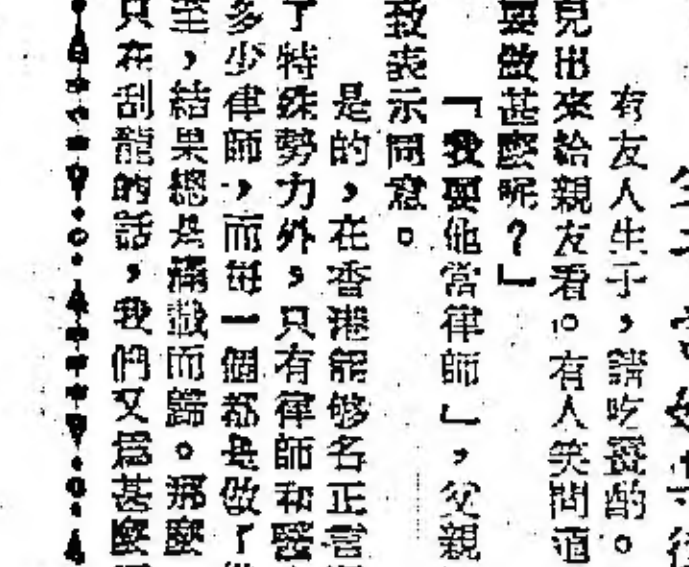 有友人生子，請吃薑酌。
見出來給親友看。有人笑問道
要做甚麼呢？」
「我要他當律師」，父親
致表示同意。
是的，在香港能够名正言
了特殊勢力外，只有律師和醫
多少律師，而每一個都是做了
至，結果總是滿載而歸。那麼
只在刮龍的話，我們又爲甚麼